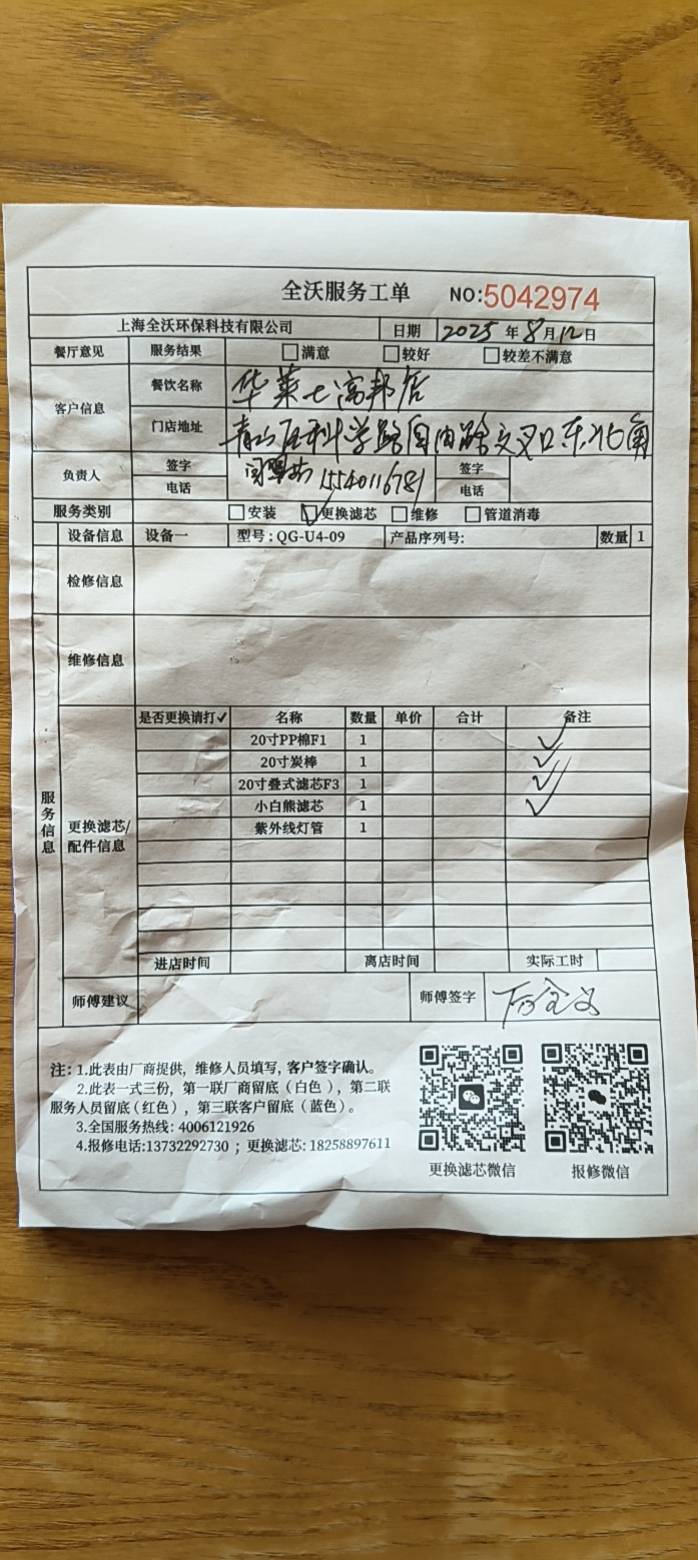 全沃服务工单 NO:5042974
上海全沃环保科技有限公司 日期 2025 年 8 月 12 日
餐厅意见 服务结果 满意 较好 较差不满意
客户信息 餐饮名称 华莱士富邦店
门店地址 青山区科学路自由路交叉口东北角
负责人 签字 签字
电话 15540116781 电话
服务类别 安装 更换滤芯 维修 管道消毒
服务信息
设备信息 设备一 型号:QG-U4-09 产品序列号: 数量 1
检修信息
维修信息
更换滤芯/配件信息
是否更换请打✓ 名称 数量 单价 合计 备注
20寸PP棉F1 1 ✓
20寸炭棒 1 ✓
20寸叠式滤芯F3 1 ✓
小白熊滤芯 1 ✓
紫外线灯管 1
进店时间 离店时间 实际工时
师傅建议 师傅签字
注: 1.此表由厂商提供，维修人员填写, 客户签字确认。
2.此表一式三份，第一联厂商留底（白色），第二联
服务人员留底(红色），第三联客户留底（蓝色）。
3.全国服务热线: 4006121926
4.报修电话:13732292730 ；更换滤芯: 18258897611
更换滤芯微信 报修微信